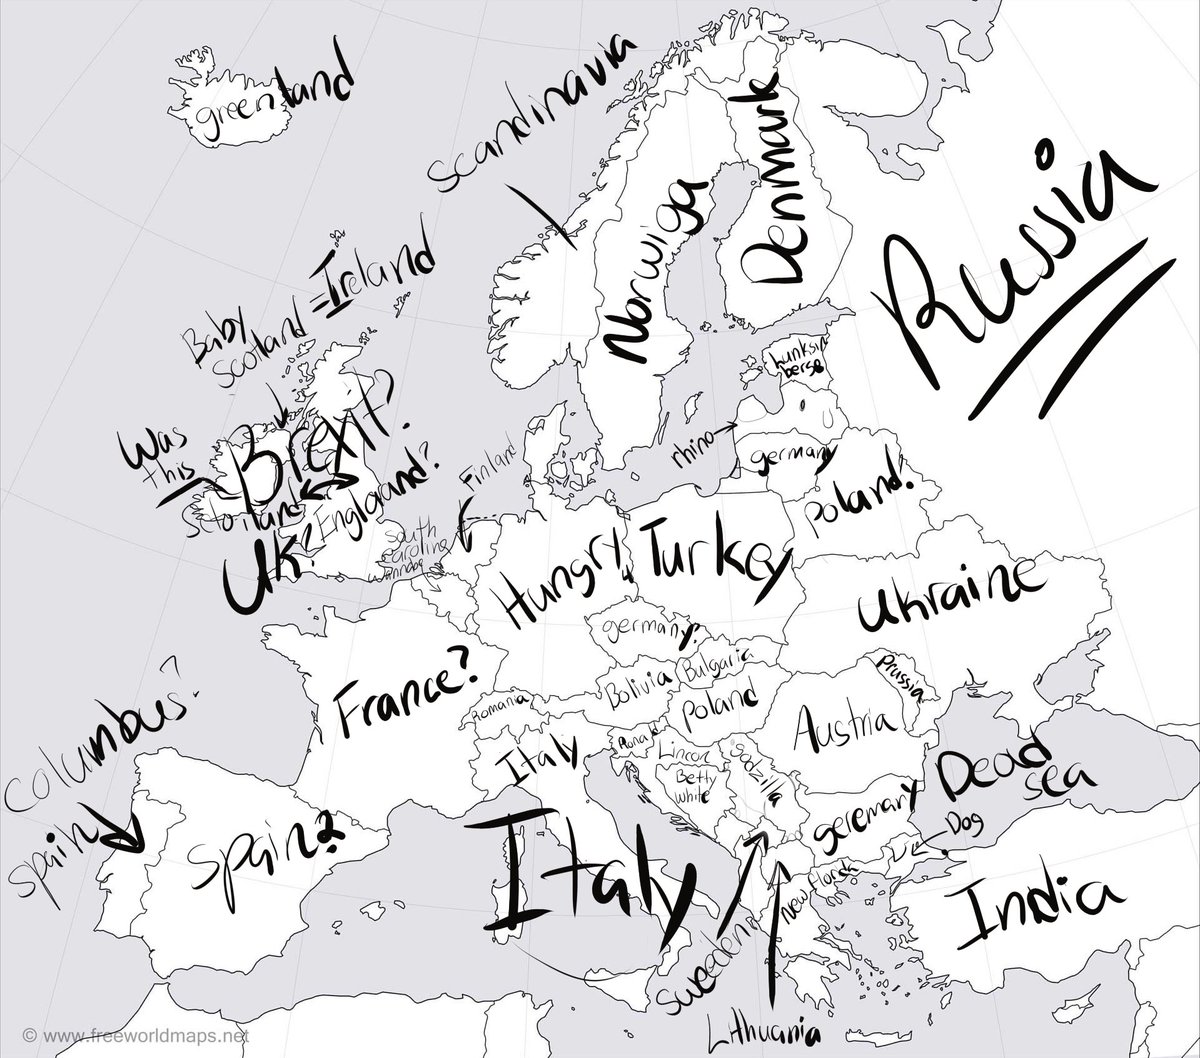 greenland
scandinavia
Denmark
Norwiga
Russia
Baby
Scotland = Ireland
Was
this
Brexit?
Scotland
England?
UK?
Finland
south
caroline
wannabe
rhino
germany
Poland?
Hungry
Turkey
Ukraine
germany?
Bolivia
Bulgaria
Prussia
France?
Romania
Poland
Austria
Italy
Lincon
Betty
white
Godzilla
Dead
sea
columbus?
spain
spain?
geremany
Dog
Italy
New florida
India
Sweeden
Lithuania
© www.freeworldmaps.net